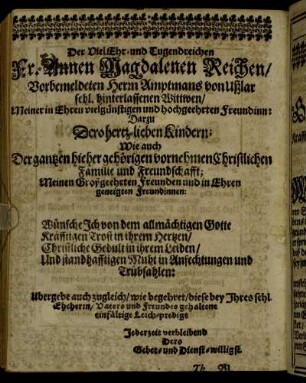 Der Viel Ehr- und Tugendreichen
Fr. Annen Magdalenen Reichen/
Vorbemeldeten Herrn Amptmans von Ußlar
sehl. hinterlassenen Wittwen/
Meiner in Ehren vielgünstigen und hochgeehrten Freundinn:
Darzu
Dero hertz-lieben Kindern:
Wie auch
Der gantzen hieher gehörigen vornehmen Christlichen
Familie und Freundschafft;
Meinen Großgeehrten Freunden und in Ehren
geneigten Freundinnen:
Wünsche Ich von dem allmächtigen Gotte
Kräfftigen Trost in ihrem Hertzen/
Christliche Gedult in ihrem Leiden/
Und standhafftigen Muht in Anfechtungen und
Trübsahlen:
Ubergebe auch zugleich/ wie begehret/ diese bey Ihres sehl.
Eheherrn/ Vaters und Freundes gehaltene
einfältige Leich-predigt
Jederzeit verbleibend
Dero
Gebet- und Dienst-willigst.
Th.